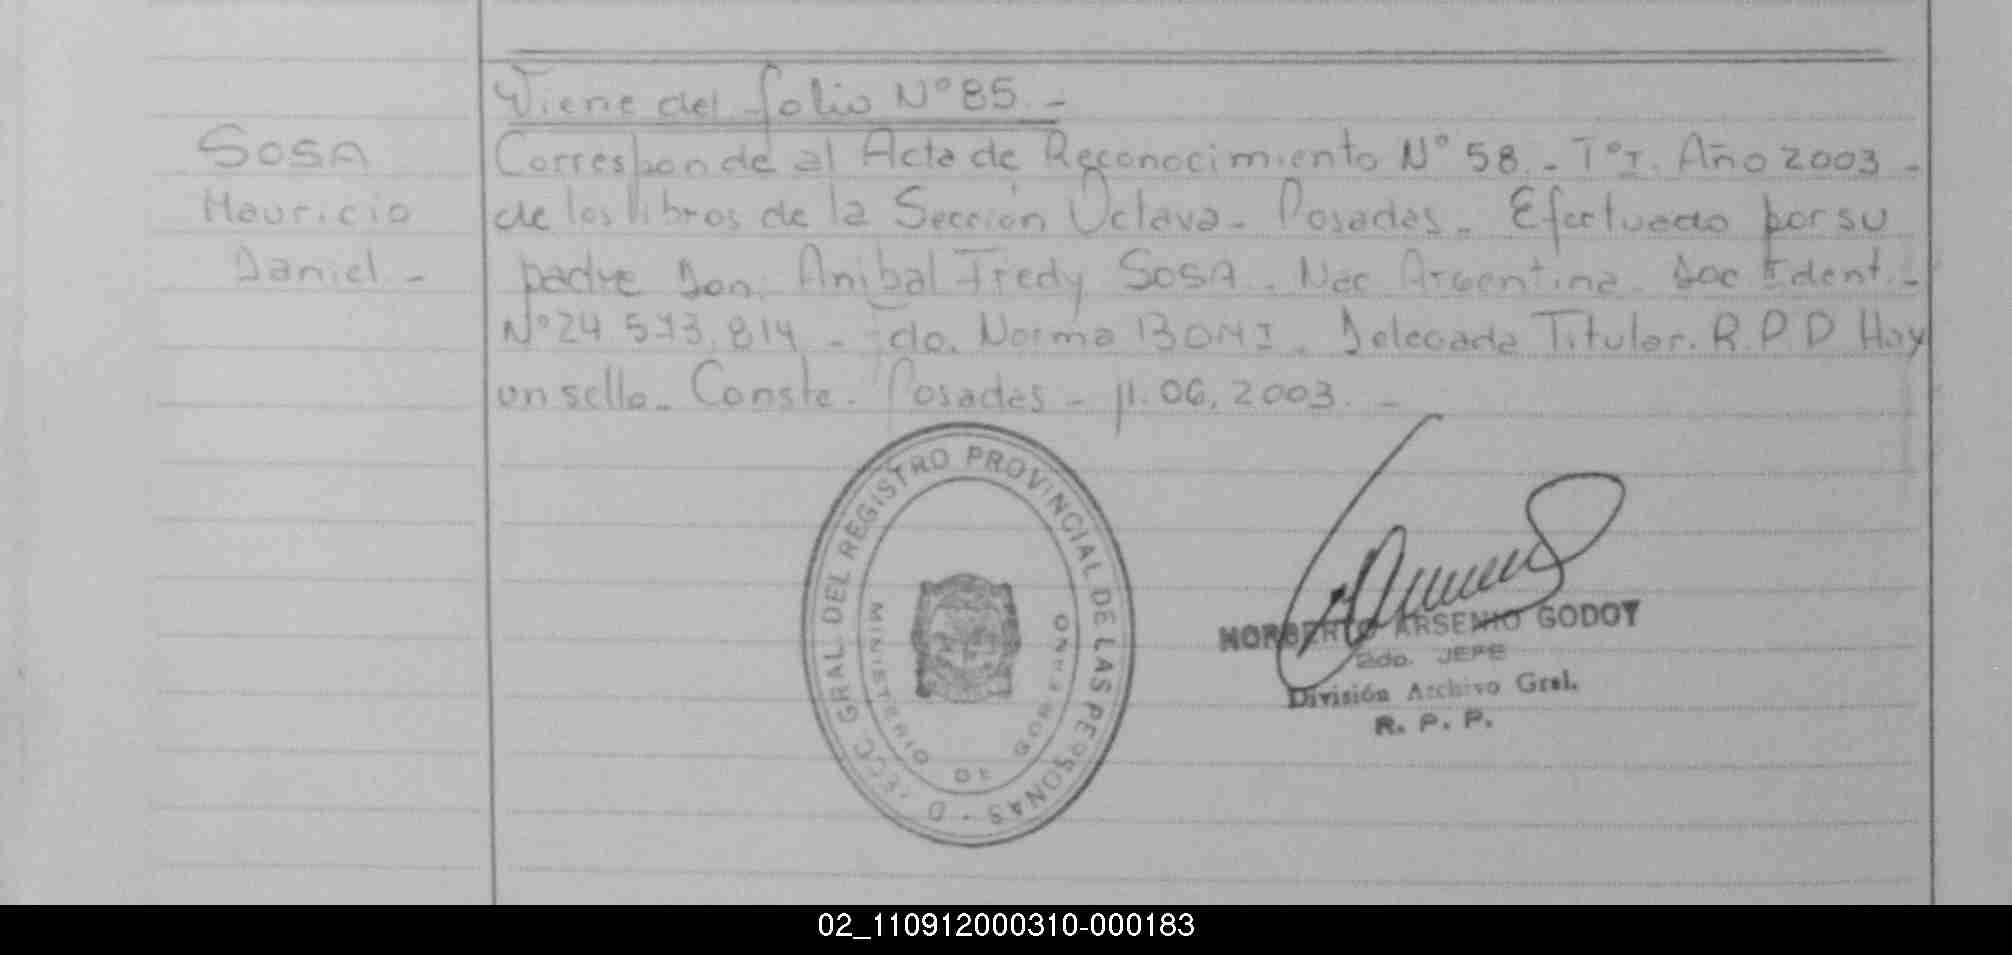 Viene del folio Nº 85.-
SOSA
Mauricio
Daniel -
Corresponde al Acta de Reconocimiento Nº 58.- TºI. Año 2003 -
de los libros de la Sección Octava- Posadas. Efectuado por su
padre Don. Anibal Fredy SOSA. Nac Argentina. Doc Ident.-
Nº 24 573.814 - Fdo. Norma BONI. Delegada Titular. R.P.P Hay
un sello. Conste. Posadas - 11.06.2003. -
DIRECC. GRAL. DEL REGISTRO PROVINCIAL DE LAS PERSONAS -
MINISTERIO DE GOBIERNO
NORBERTO ARSENIO GODOY
2do. JEFE
División Archivo Gral.
R. P. P.
02_110912000310-000183